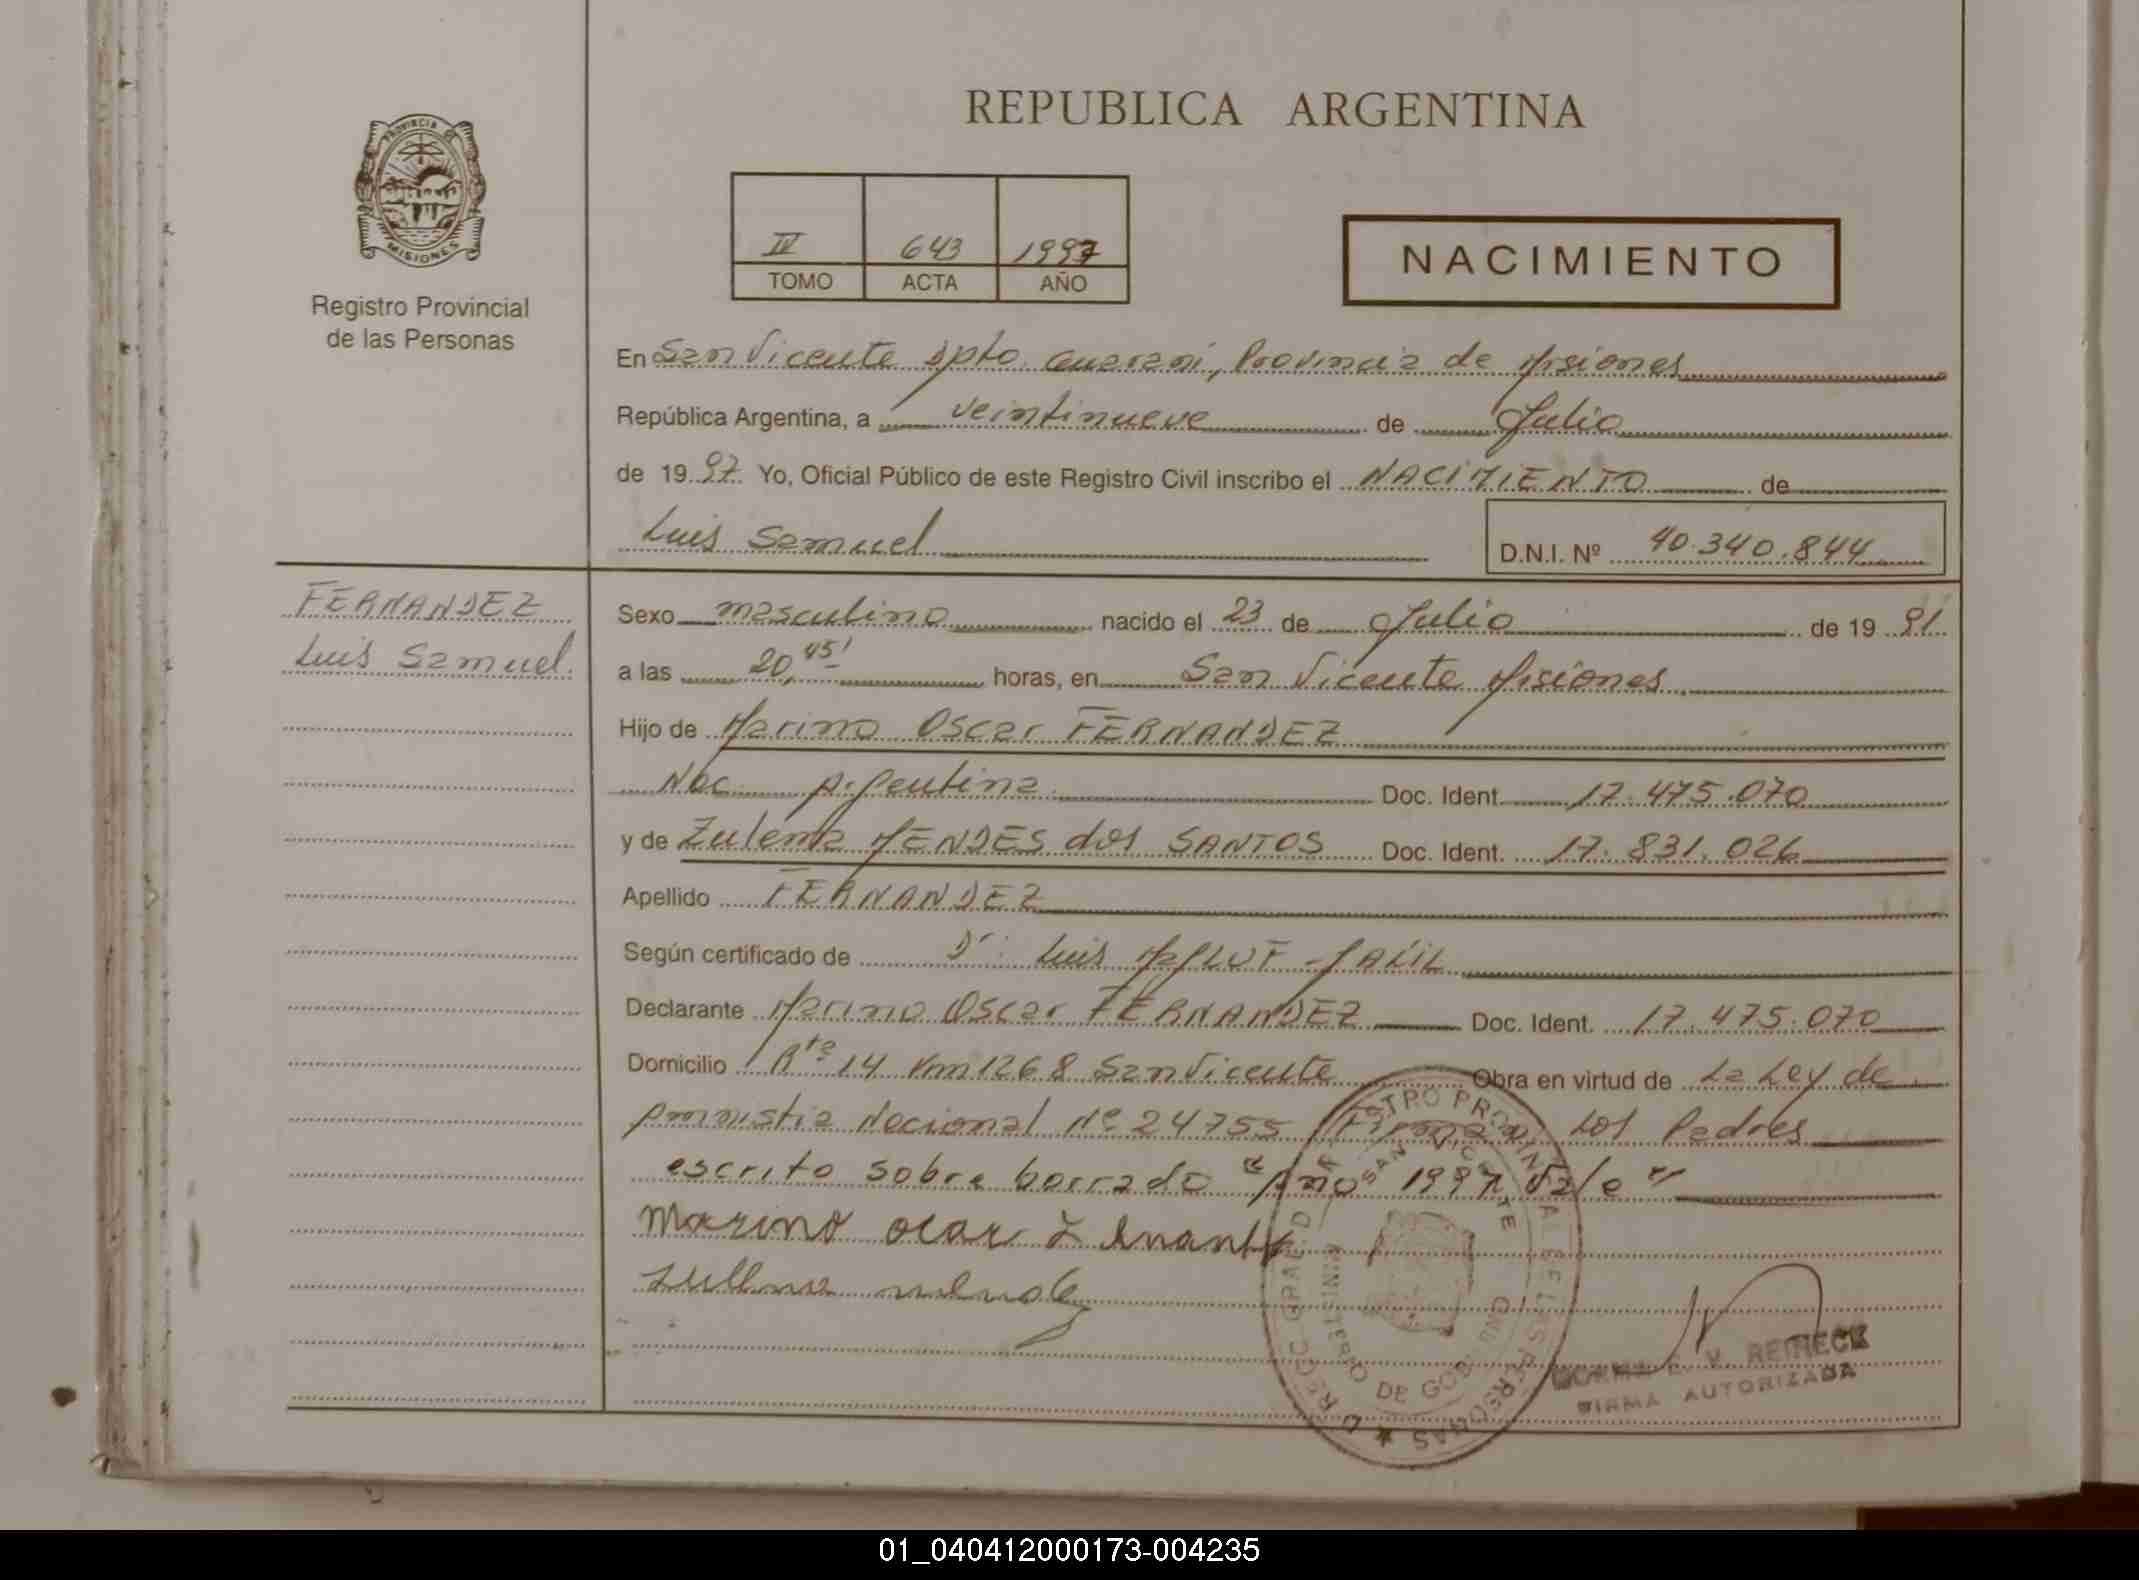 REPUBLICA ARGENTINA
PROVINCIA DE
MISIONES
Registro Provincial
de las Personas
IV 643 1997
TOMO ACTA AÑO
NACIMIENTO
En San Vicente Dpto. Guaraní, Provincia de Misiones
República Argentina, a veintinueve de Julio
de 19 97 Yo, Oficial Público de este Registro Civil inscribo el NACIMIENTO de
Luis Samuel D.N.I. Nº 40.340.844
FERNANDEZ
Luis Samuel.
Sexo masculino nacido el 23 de Julio de 19 91
a las 20,45' horas, en San Vicente Misiones
Hijo de Marino Oscar FERNANDEZ
Nac. Argentina Doc. Ident. 17.475.070
y de Zulema MENDES dos SANTOS Doc. Ident. 17.831.026
Apellido FERNANDEZ
Según certificado de Dr. Luis MALUF JALIL
Declarante Marino Oscar FERNANDEZ Doc. Ident. 17.475.070
Domicilio Rta 14 Km 1268 San Vicente Obra en virtud de La Ley de
Amnistia Nacional Nº 24755 Firman Los Padres
escrito sobre borrado "Año 1997 Vale"
Marino ocar
REGISTRO PROVINCIAL DE LAS PERSONAS
SAN VICENTE
MINISTERIO DE GOBIERNO
NORMA E. V. REIRECK
FIRMA AUTORIZADA
01_040412000173-004235